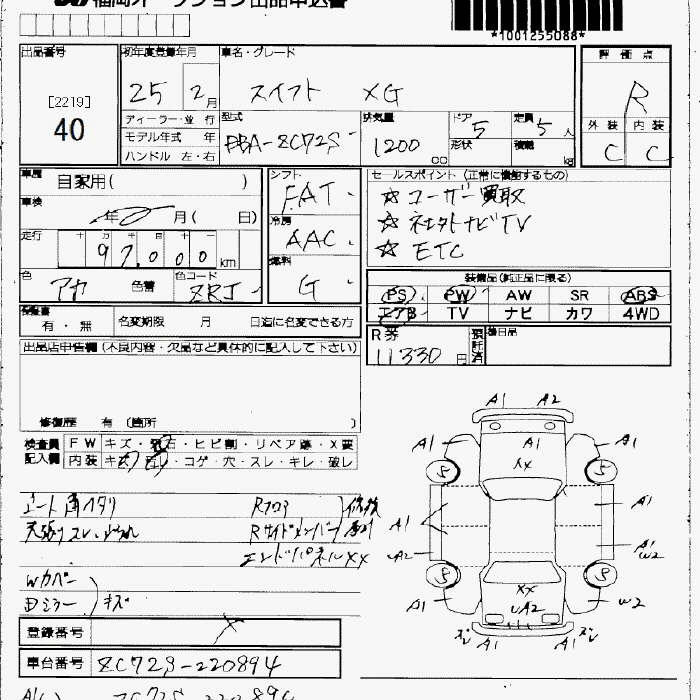 福岡オークション出品申込書
*1001255088*
出品番号 初年度登録年月 車名・グレード 評価点
[2219]
40
25 2月 スイフト XG R
ディーラー・並行 型式 排気量 ドア 5 定員 5人 外装 内装
モデル年式 年 DBA-ZC72S 1200cc 形状 積載 kg C C
ハンドル 左・右
車歴 自家用( ) シフト FAT セールスポイント(正常に機能するもの)
車検 年 月( 日) 冷房 AAC ☆ユーザー買取
☆ネエタトナビTV
走行 十万千百十一 97,000km ☆ETC
燃料 G
色 アカ 色替 色コード ZRJ 装備品(純正品に限る)
PS PW AW SR ABS
エアB TV ナビ カワ 4WD
保証書 有・無 名変期限 月 日迄に名変できる方
R券 11330円 預託済 備日品
出品店申告欄(不良内容・欠品など具体的に記入して下さい)
修復歴 有 (箇所 )
検査員 FW キズ・飛石・ヒビ割・リペア跡・X要
記入欄 内装 キズ・コゲ・穴・スレ・キレ・破レ
A1 A2
A1 A1 A1
XX
5 5
A1 A1
A2 A1 W2
5 5
XX
UA2
A1 W2
A1 A1
シート角ヘタリ Rフロア
天張りスレ・よごれ Rサイドメンバー
エンドパネルXX
Wカバー
Dミラー キズ
登録番号
車台番号 ZC72S-220894